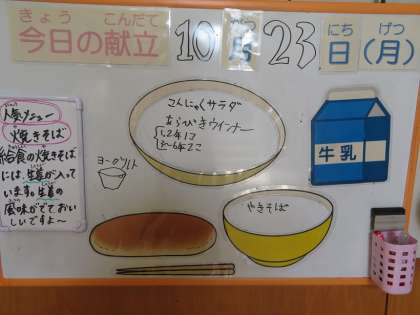 きょう
こんだて
今日の献立
10
がつ
月
23
にち
日
げつ
(月)
人気メニュー
焼きそば
給食の焼きそば
には、生姜が入って
います。生姜の
風味がでておい
しいですよ～
ヨーグルト
こんにゃくサラダ
あらびきウインナー
1,2年1コ
3～6年2コ
牛乳
やきそば